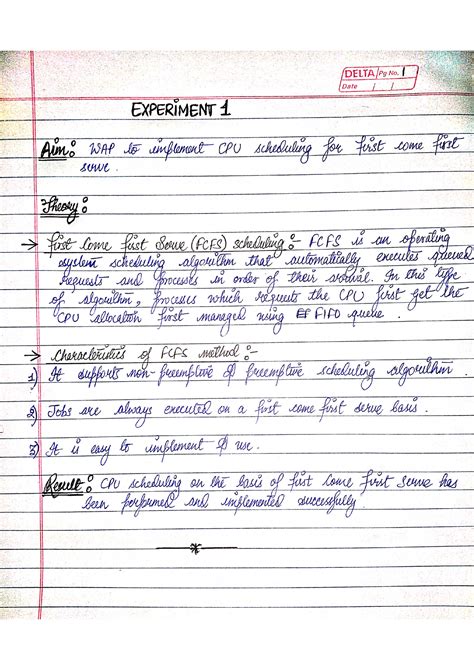 DELTA Pg No. 1
Date
EXPERIMENT 1
Aim: WAP to implement CPU scheduling for first come first
serve.
Theory:
→ First Come First Serve (FCFS) scheduling:- FCFS is an operating
system scheduling algorithm that automatically executes queued
requests and processes in order of their arrival. In this type
of algorithm, processes which requests the CPU first get the
CPU allocation first managed using FIFO queue.
→ Characteristics of FCFS method:-
1) It supports non-preemptive & preemptive scheduling algorithm.
2) Jobs are always executed on a first come first serve basis.
3) It is easy to implement & use.
Result: CPU scheduling on the basis of first come first serve has
been performed and implemented successfully.